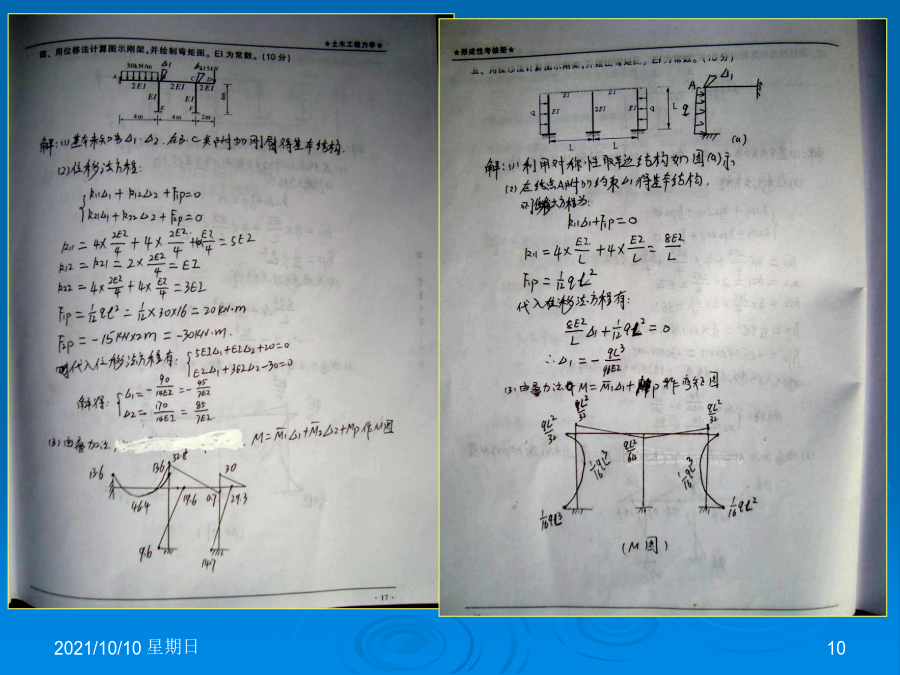 ★土木工程力学★
四、用位移法计算图示刚架,并绘制弯矩图。EI 为常数。(10 分)
30kN/m Δ1 Δ2 15kN
A C D
2EI 2EI 2EI
EI EI
E F
4m 4m 2m
解:(1)基本未知量Δ1、Δ2.在B、C
(2)位移法方程:
k11Δ1+k12Δ2+F1p=0
k21Δ1+k22Δ2+F2p=0
k12=k21=2×2EI/4=EI
k22=4×2EI/4+4×EI/4=3EI
F1p=1/12ql²=1/12×30×16=20kN·m
F2p=-15KN×2m=-30KN·m.
代入位移法方程有: 5EIΔ1+EIΔ2+20=0
EIΔ1+3EIΔ2-30=0
解得: Δ1=-90/14EI=-45/7EI
Δ2=170/14EI=85/7EI
(3)由叠加法, M=M̄1Δ1+M̄2Δ2+Mp作M图
13.6 13.6 32.8 30
46.4 19.6 0.7 29.3
9.6 14.7
· 17 ·
★形成性考核册★
五、用位移法计算图示刚架,并绘出弯矩图。EI为常数。(10分)
EI EI
q EI 2EI EI q L
L L
A Δ1
q
(a)
解:(1)利用对称性取半边结构如图(a)示
(2)在结点A附加约束Δ1得基本结构.
则位移法方程为:
k11Δ1+F1p=0
k11=4×EI/L+4×EI/L=8EI/L
F1p=1/12qL²
代入位移法方程有:
8EI/L Δ1+1/12qL²=0
∴Δ1=-qL³/96EI
(3)由叠加法 M=M̄1Δ1+Mp作弯矩图
(M图)
2021/10/10 星期日
10